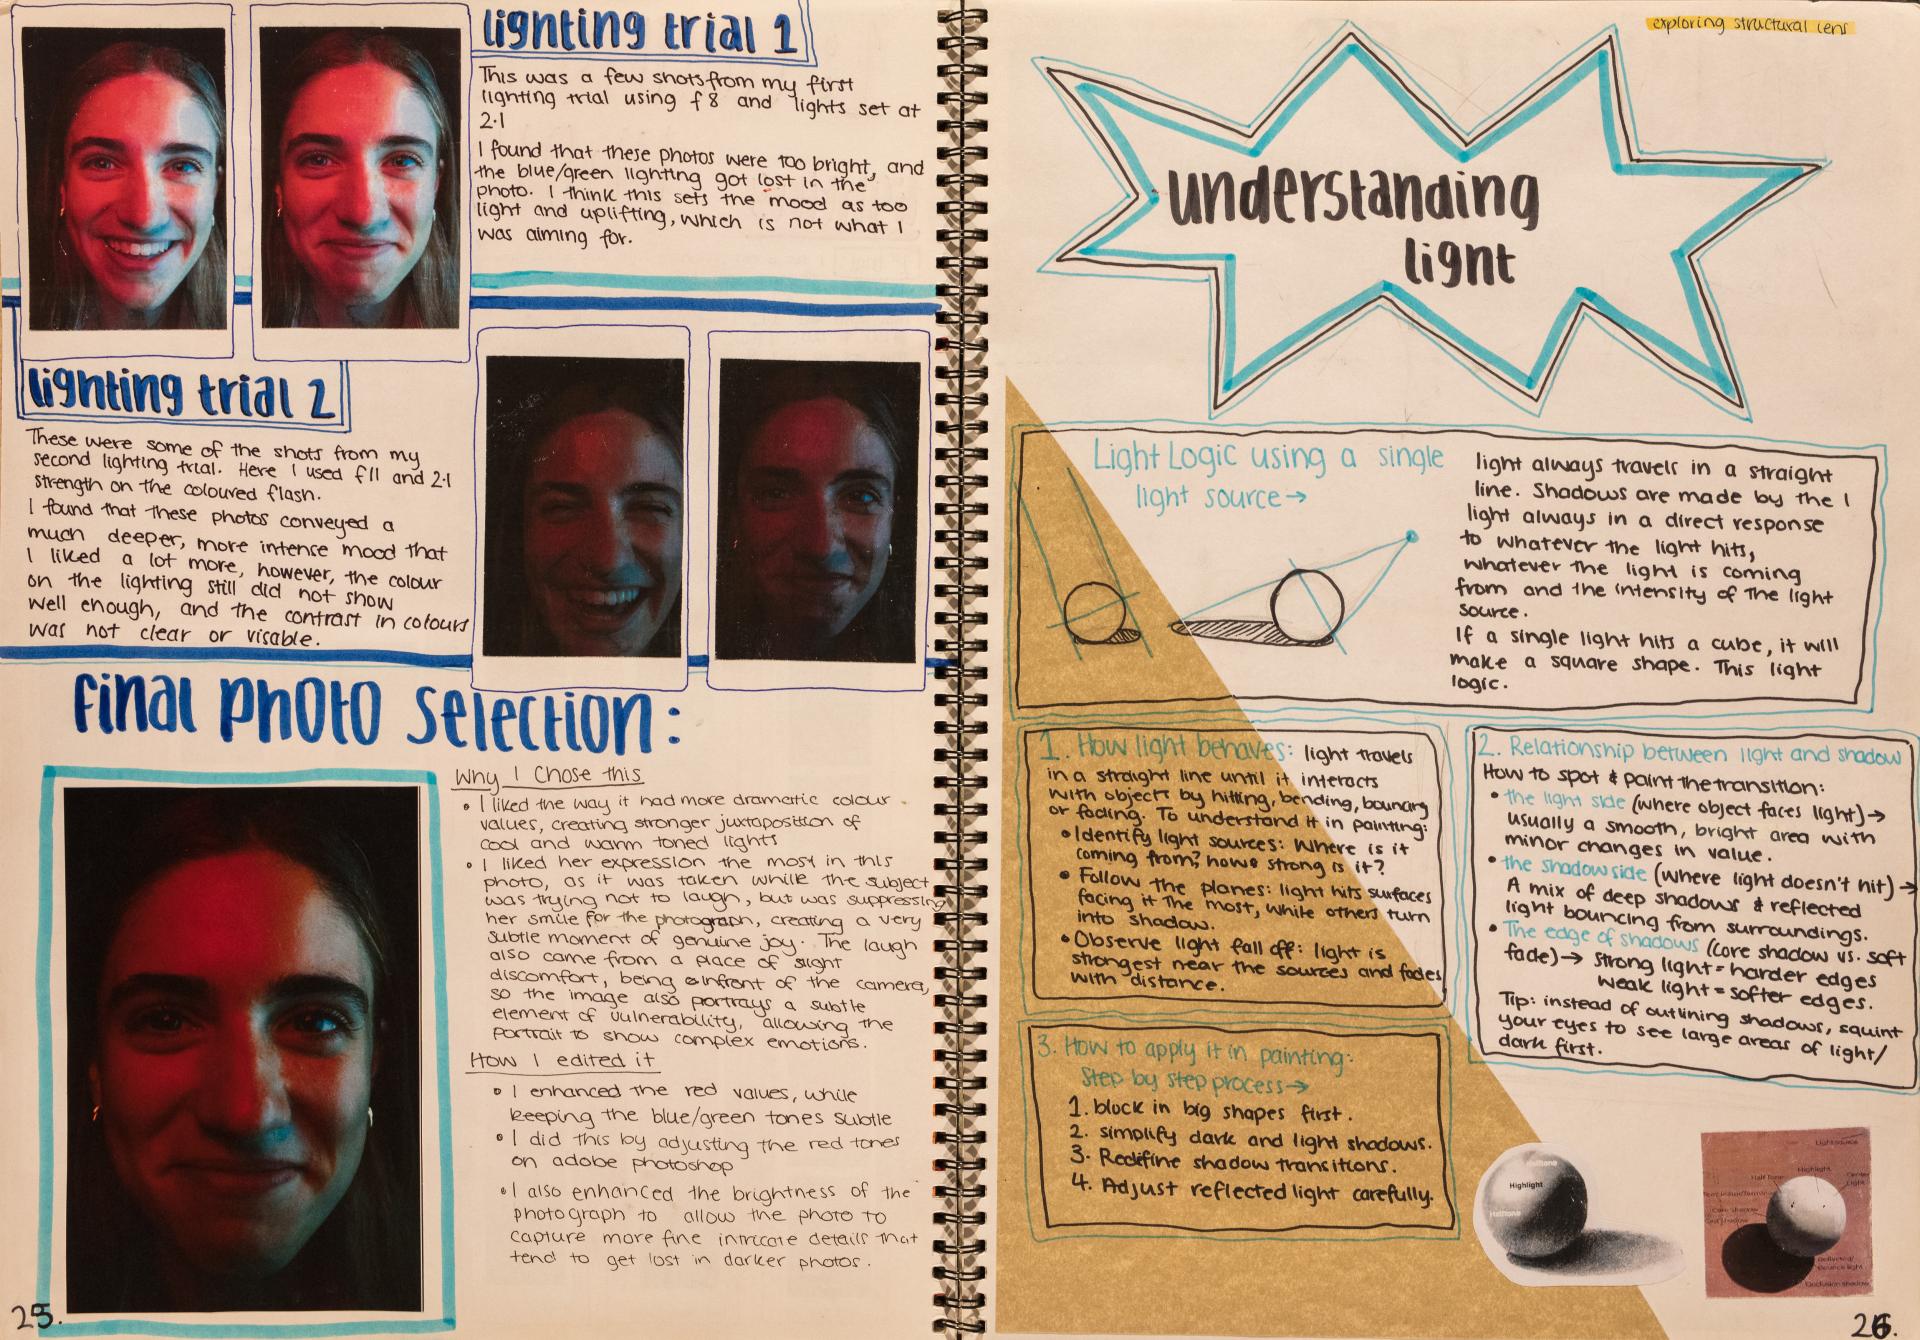 lighting trial 1
This was a few shots from my first
lighting trial using f8 and lights set at
2.1
I found that these photos were too bright, and
the blue/green lighting got lost in the
photo. I think this sets the mood as too
light and uplifting, which is not what I
was aiming for.
lighting trial 2
These were some of the shots from my
second lighting trial. Here I used f11 and 2.1
strength on the coloured flash.
I found that these photos conveyed a
much deeper, more intense mood that
I liked a lot more, however, the colour
on the lighting still did not show
well enough, and the contrast in colours
was not clear or visable.
final photo selection:
Why I Chose this
• I liked the way it had more dramatic colour
values, creating stronger juxtaposition of
cool and warm toned lights
• I liked her expression the most in this
photo, as it was taken while the subject
was trying not to laugh, but was suppressing
her smile for the photograph, creating a very
subtle moment of genuine joy. The laugh
also came from a place of slight
discomfort, being infront of the camera,
so the image also portrays a subtle
element of vulnerability, allowing the
portrait to show complex emotions.
How I edited it
• I enhanced the red values, while
keeping the blue/green tones subtle
• I did this by adjusting the red tones
on adobe photoshop
• I also enhanced the brightness of the
photograph to allow the photo to
capture more fine intricate details that
tend to get lost in darker photos.
25.
exploring structural lens
understanding
light
Light Logic using a single
light source→
light always travels in a straight
line. Shadows are made by the 1
light always in a direct response
to whatever the light hits,
whatever the light is coming
from and the intensity of the light
source.
If a single light hits a cube, it will
make a square shape. This light
logic.
1. How light behaves: light travels
in a straight line until it interacts
with objects by hitting, bending, bouncing
or fading. To understand it in painting:
• Identify light sources: Where is it
coming from? how strong is it?
• Follow the planes: light hits surfaces
facing it the most, while others turn
into shadow.
• Observe light fall off: light is
strongest near the sources and fades
with distance.
2. Relationship between light and shadow
How to spot & paint the transition:
• the light side (where object faces light)→
usually a smooth, bright area with
minor changes in value.
• the shadow side (where light doesn't hit)→
A mix of deep shadows & reflected
light bouncing from surroundings.
• The edge of shadows (core shadow vs. soft
fade)→ strong light = harder edges
weak light = softer edges.
Tip: instead of outlining shadows, squint
your eyes to see large areas of light/
dark first.
3. How to apply it in painting:
Step by step process→
1. block in big shapes first.
2. simplify dark and light shadows.
3. Redifine shadow transitions.
4. Adjust reflected light carefully.
Halftone
Highlight
Halftone
Lightsource
Highlight
Half Tone
Center
Light
Core shadow
Cast shadow
Reflected/
Bounce light
Occlusion shadow
26.